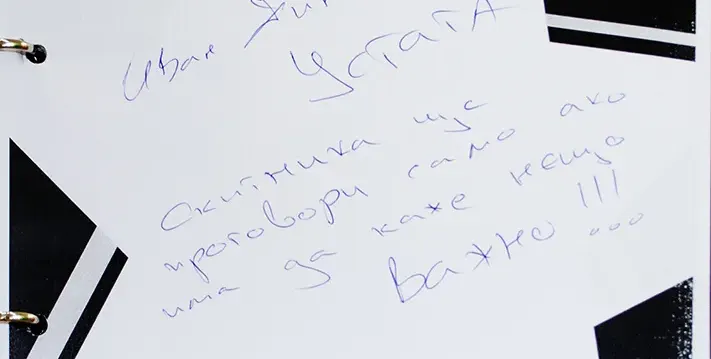 Иван
Устата
Скитника ще
проговори само ако
има да каже нещо
важно!!!...